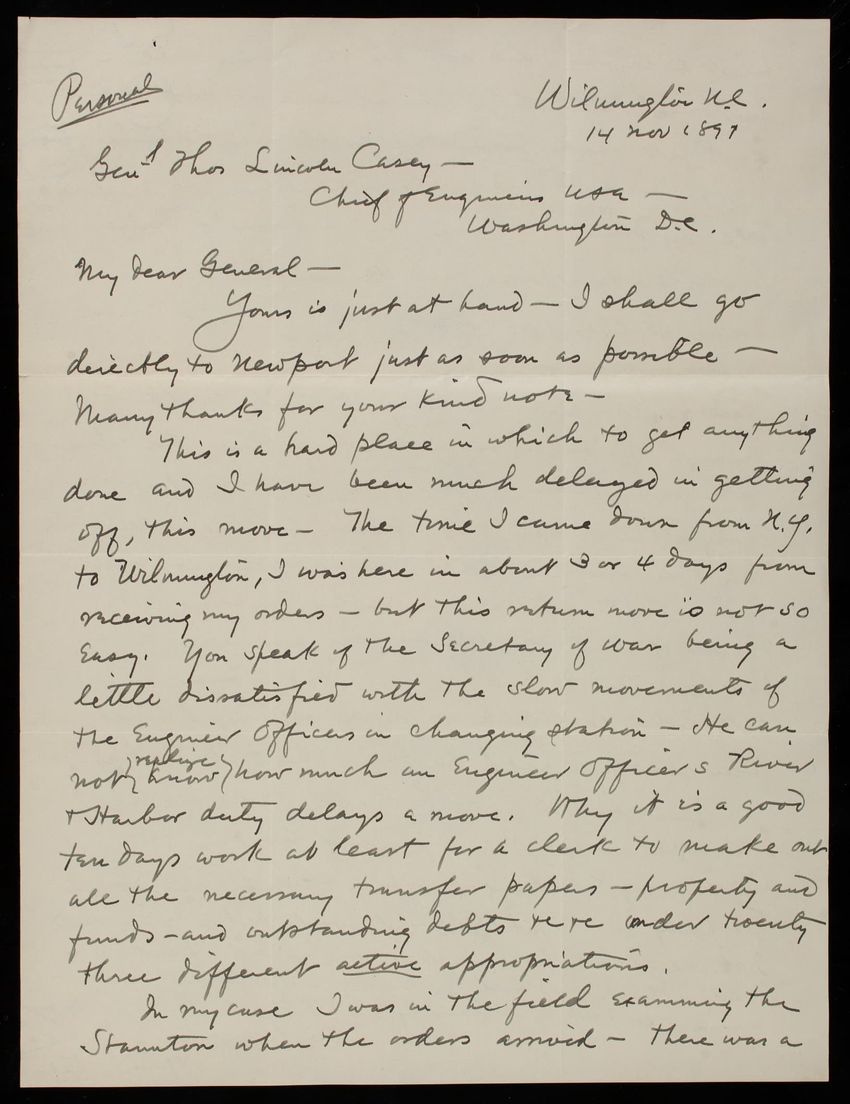 Personal
Wilmington N.C.
14 Nov 1891
Genl Thos Lincoln Casey —
Chief of Engineers USA —
Washington D.C.
My dear General —
Yours is just at hand — I shall go
directly to Newport just as soon as possible —
Many thanks for your kind note —
This is a hard place in which to get anything
done and I have been much delayed in getting
off, this move — The time I came down from N.Y.
to Wilmington, I was here in about 3 or 4 days from
receiving my orders — but this return move is not so
easy. You speak of the Secretary of War being a
little dissatisfied with the slow movements of
the Engineer Officers in changing station — He can
realize
not know how much an Engineer Officer's River
& Harbor duty delays a move. Why it is a good
ten days work at least for a clerk to make out
all the necessary transfer papers — property and
funds — and outstanding debts &c &c under twenty
three different active appropriations.
In my case I was in the field examining the
Staunton when the orders arrived — There was a